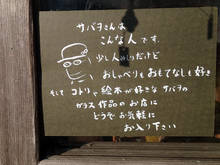 サバヲさんは
こんな人です。
少し人見しりだけど
おしゃべりもおもてなしも好き
そして コトリや絵本が好きな サバヲの
ガラス作品のお店に
どうぞ お気軽に
お入り下さい